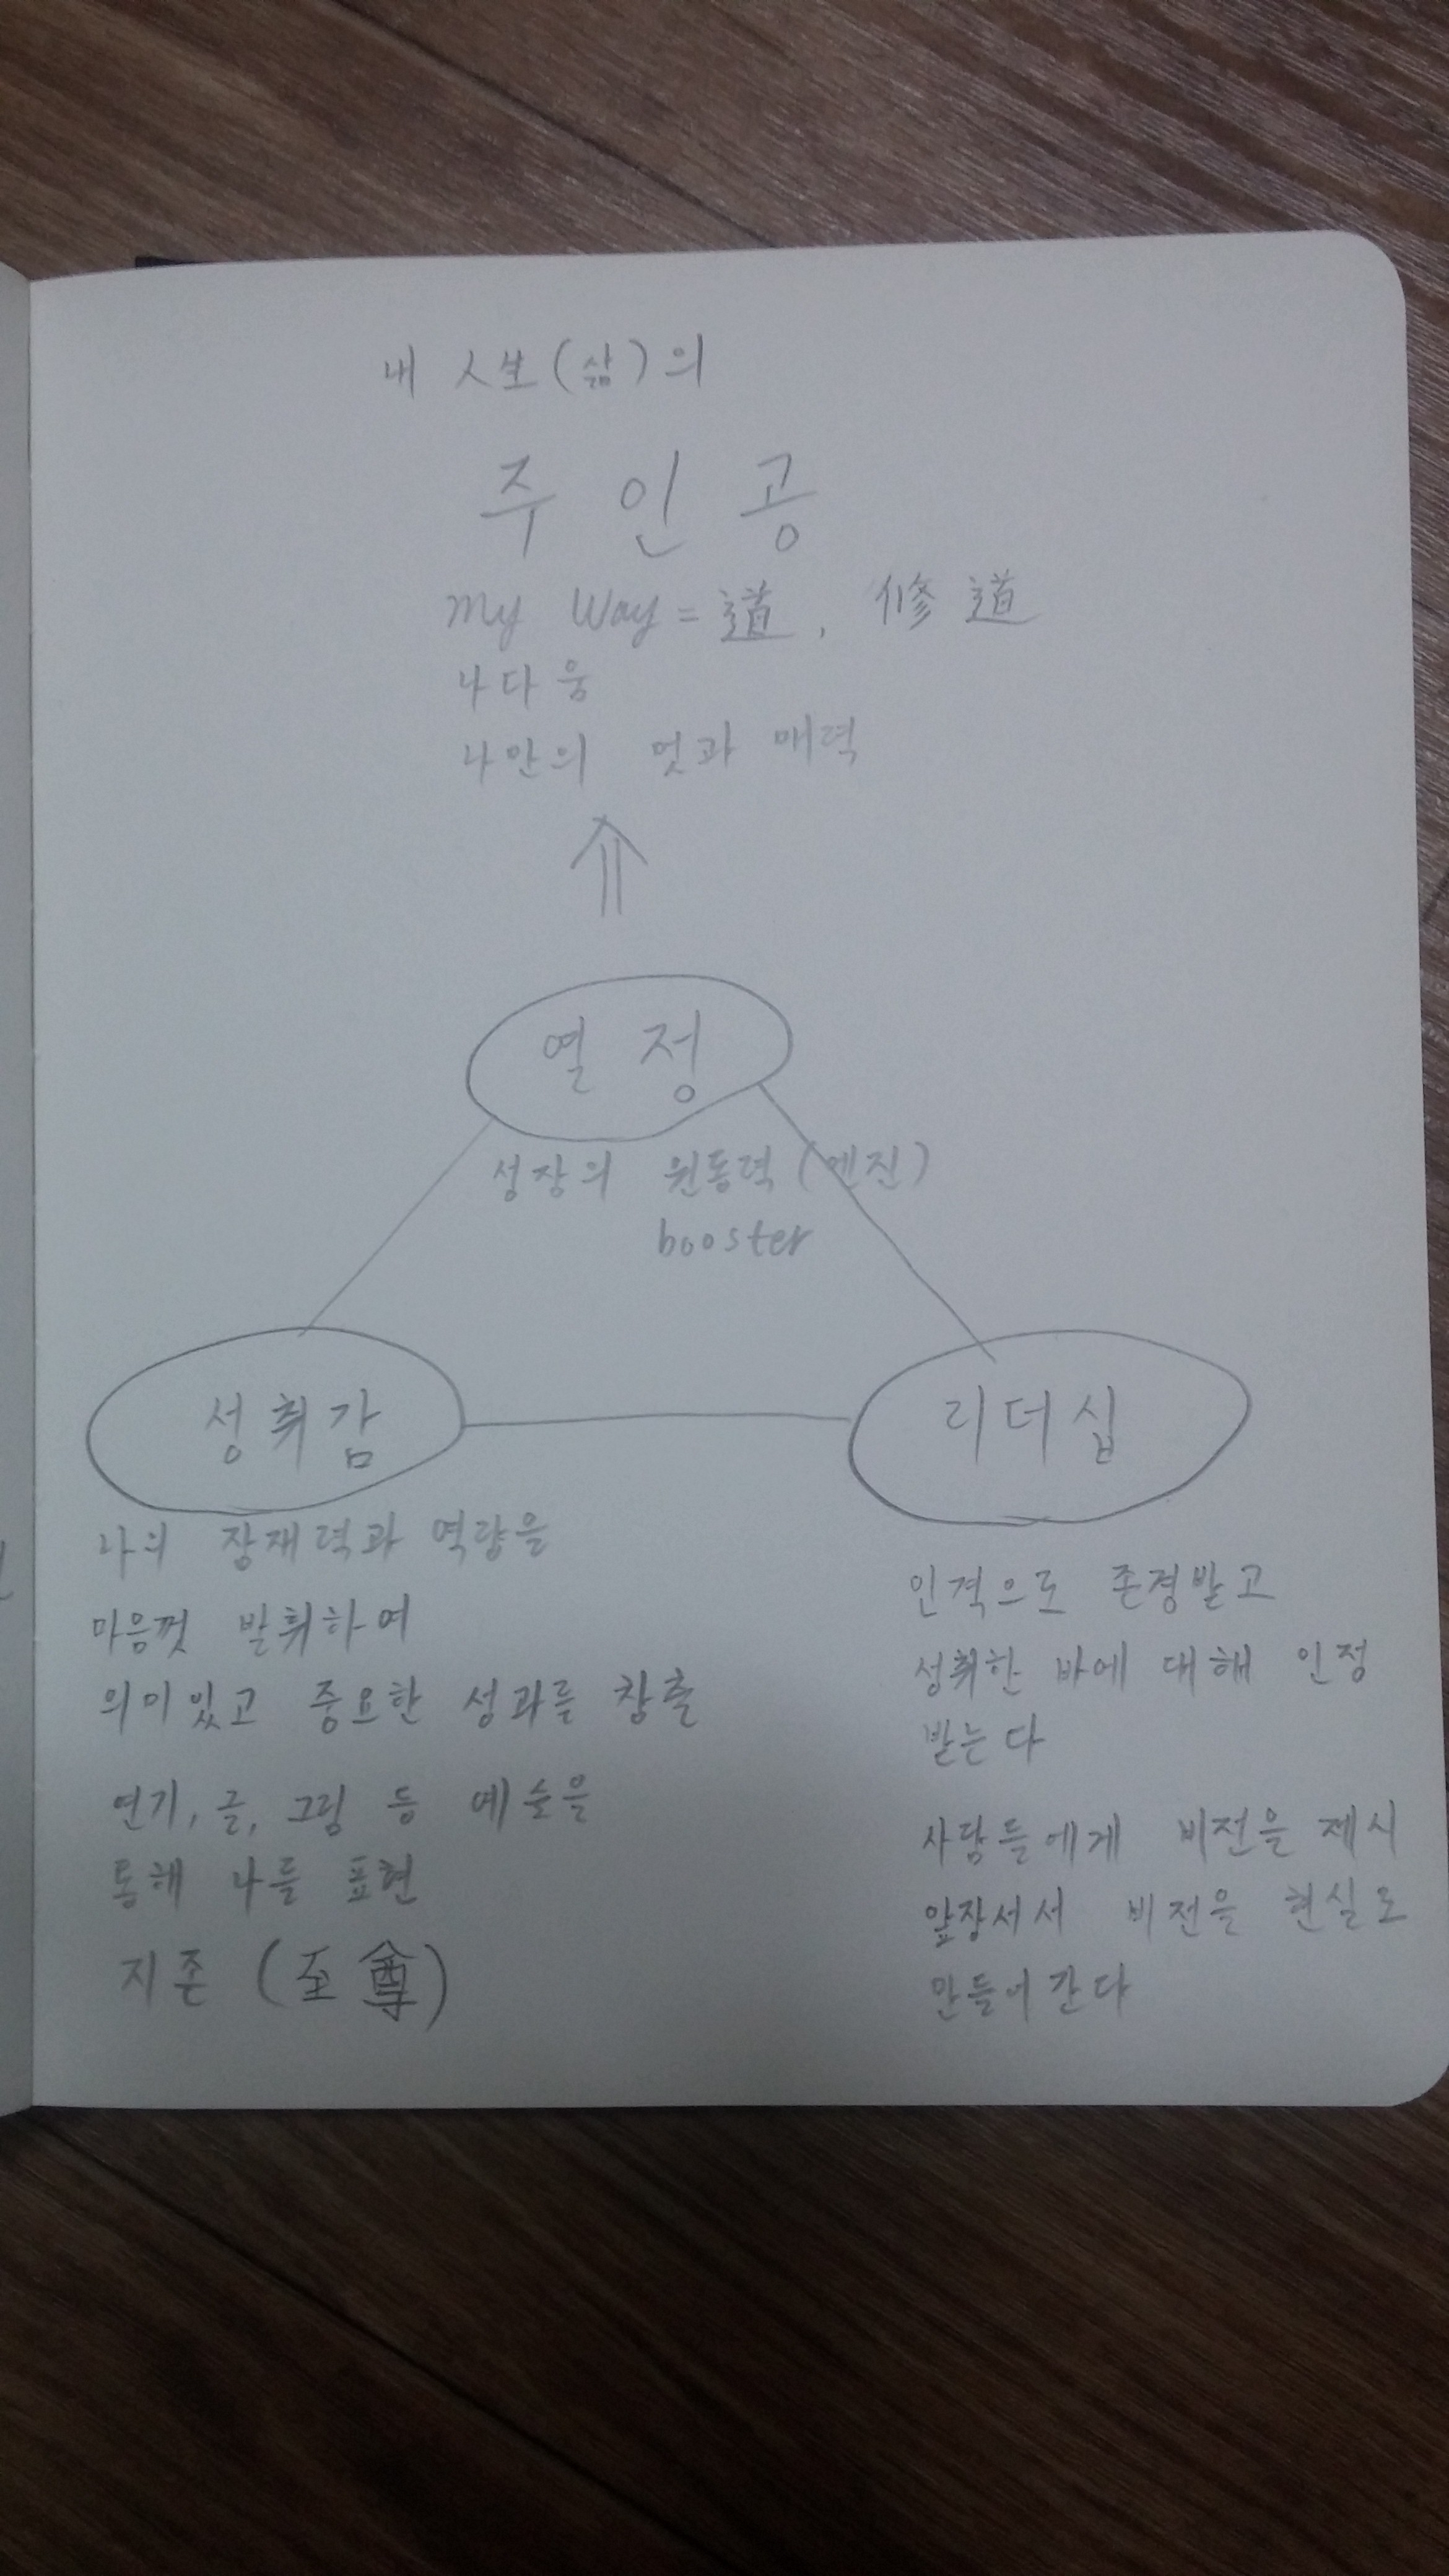 내 人生(삶)의
주인공
my Way = 道, 修道
나다움
나만의 멋과 매력
열정
성장의 원동력(엔진)
booster
성취감
리더십
나의 잠재력과 역량을
마음껏 발휘하여
의미있고 중요한 성과를 창출
연기, 글, 그림 등 예술을
통해 나를 표현
지존 (至尊)
인격으로 존경받고
성취한 바에 대해 인정
받는다
사람들에게 비전을 제시
앞장서서 비전을 현실로
만들어간다